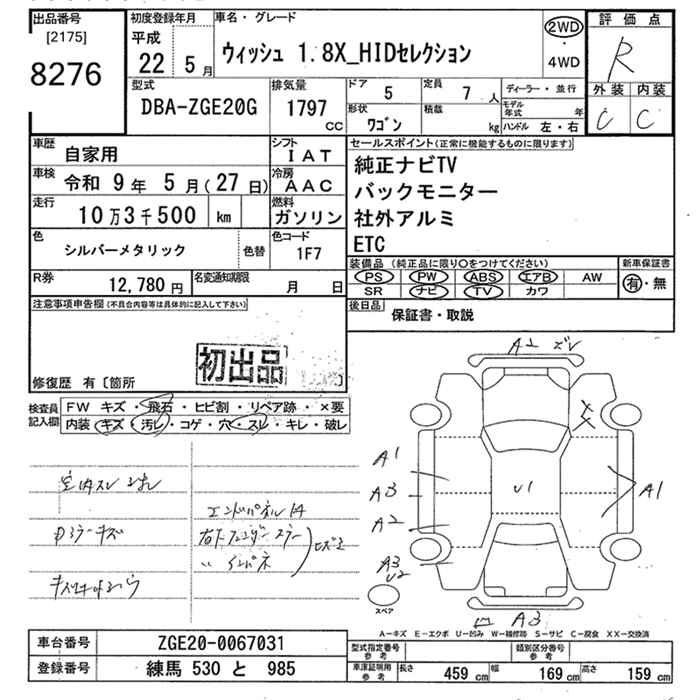 出品番号
[2175]
8276
初度登録年月
平成
22 5月
車名・グレード
ウィッシュ 1.8X_HIDセレクション
2WD
・
4WD
評価点
R
外装 内装
C C
型式
DBA-ZGE20G
排気量
1797
cc
ドア 5
定員 7人
形状
ワゴン
積載
kg
ディーラー・並行
モデル年式 年
ハンドル 左・右
車歴 自家用
シフト IAT
車検 令和 9年 5月(27日)
冷房 AAC
走行 10万3千500 km
燃料 ガソリン
色 シルバーメタリック 色替
色コード 1F7
R券 12,780円
名変通知期限 月 日
セールスポイント(正常に機能するものに限ります)
純正ナビTV
バックモニター
社外アルミ
ETC
装備品(純正品に限り○をつけてください)
PS PW ABS エアB AW
SR ナビ TV カワ
新車保証書
有・無
後日品
保証書・取説
注意事項申告欄(不具合内容等は具体的に記入して下さい)
初出品
修復歴 有〔箇所 〕
検査員記入欄
FW キズ・飛石・ヒビ割・リペア跡・×要
内装・キズ・汚レ・コゲ・穴・スレ・キレ・破レ
A1
A1
A3
A2
A3
U2
U1
A1
A3
スペア
A-キズ E-エクボ U-凹み W-補修跡 S-サビ C-腐食 XX-交換済
車台番号 ZGE20-0067031
登録番号 練馬 530 と 985
型式指定番号
参考
類別区分番号
参考
車庫証明用
参考
長さ 459 cm 幅 169 cm 高さ 159 cm